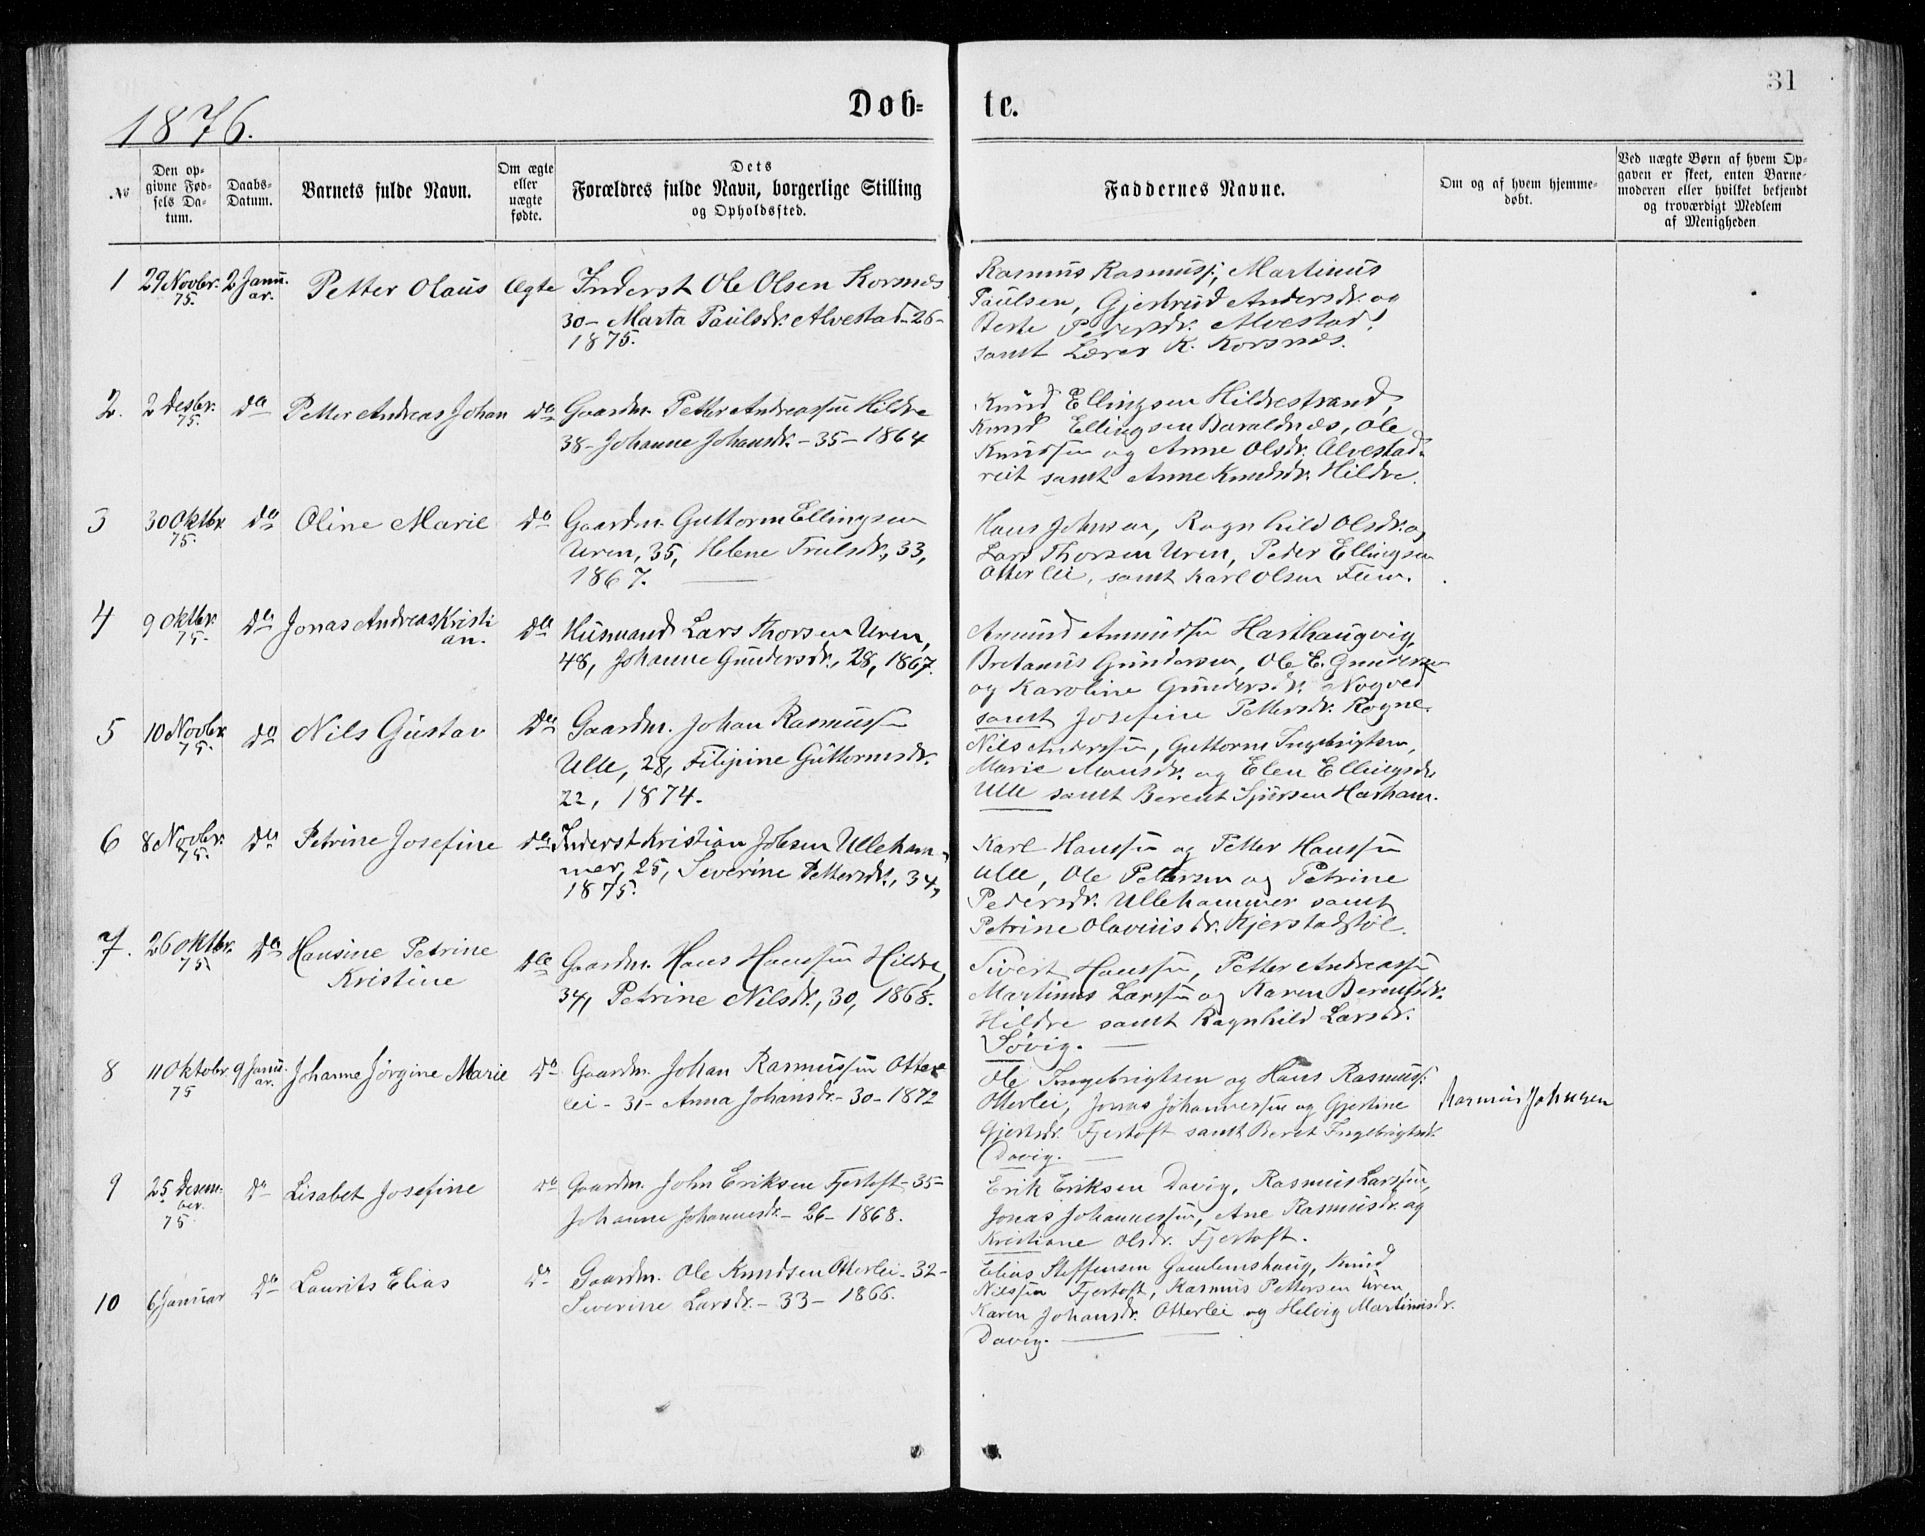 31
Døb- te.
1876.
No
Den op-
givne Fød-
sels Da-
tum.
Daabs-
Datum.
Barnets fulde Navn.
Om ægte
eller
uægte
fødte.
Dets
Forældres fulde Navn, borgerlige Stilling
og Opholdssted.
Faddernes Navne.
Om og af hvem hjemme-
døbt.
Ved uægte Børn af hvem Op-
gaven er skeet, enten Barne-
moderen eller hvilket bekjendt
og troværdigt Medlem
af Menigheden
1 29 Novbr. 75. 2 Janu- ar. Petter Olaus Ægte
Inderst Ole Olsen Korsnes
30 - Marta Paulsdr. Alvestad - 26 -
1875.
Rasmus Rasmuss:, Martinus
Paulsen, Gjertrud Andersdr. og
Berte Pedersdr. Alvestad,
samt Lærer K. Korsnes.
2. 2 Desbr. 75. do Petter Andreas Johan do
Gaardm. Petter Andreassen Hildre
38 - Johanne Johansdr. - 35 - 1864
Knud Ellingsen Hildrestrand,
Knud Ellingsen Baraldnes, Ole
Knudsen og Anne Olsdr. Alvestad-
reit samt Anne Knudsdr. Hildre.
3 30 Oktbr. 75. do Oline Marie do
Gaardm. Guttorm Ellingsen
Uren, 35, Helene Trulsdr., 33,
1867.
Hans Johnsen, Ragnhild Olsdr. og
Lars Thorsen Uren, Peder Ellingsen
Otterlei, samt Karl Olsen
4 9 Oktbr. 75. do Jonas Andreas Kristi
an. do
Husmand Lars Thorsen Uren,
48, Johanne Gundersdr., 28, 1867.
Amund Amundsen Harthaugvig,
Bretanus Gundersen, Ole E. Gundersen
og Karoline Gundersdr. Nogved
samt Josefine Pettersdr. Rogne.
5 10 Novbr. 75. do Nils Gustav do
Gaardm. Johan Rasmussen
Ulle, 28, Filipine Guttormsdr.
22, 1874.
Nils Anderssen, Guttorm Ingebrigtsen,
Marie Monsdr. og Elen Ellingsdr.
Ulle samt Berent Sjursen Harham.
6 8 Novbr. 75. do Petrine Josefine do
Inderst Kristian Jobsen Ulleham-
mer, 25, Severine Pettersdr., 34,
1875.
Karl Hanssen og Petter Hanssen
Ulle, Ole Pettersen og Petrine
Pedersdr. Ullehammer samt
Petrine Olavusdr. Kjerstadstøl.
7. 26 Oktbr. 75 do Hansine Petrine
Kristine do
Gaardm. Hans Hanssen Hildre,
34, Petrine Nilsdr., 30, 1868.
Sivert Hanssen, Petter Andreassen
Martinus Larssen og Karen Berentsdr.
Hildre samt Ragnhild Larsdr.
Søvig.
8 11 Oktobr. 75 9 Janu- ar. Johanne Jørgine Marie do
Gaardm. Johan Rasmussen Otter
lei - 31 - Anna Johansdr. - 30 - 1872
Ole Ingebrigtsen og Hans Rasmuss:
Otterlei, Jonas Johannessen og Gjertine
Gjertsdr. Fjertoft samt Beret Ingebrigtsdr.
Davig.
Rasmus Johnsen
9 25 Desem- ber. 75 do Lisabet Josefine do
Gaardm. John Eriksen Fjertoft - 35 -
Johanne Johannesdr. - 26 - 1868.
Erik Eriksen Davig, Rasmus Larssen,
Jonas Johannessen, Ane Rasmusdr. og
Kristiane Olsdr. Fjertoft.
10 6 Januar do Laurits Elias do
Gaardm. Ole Knudsen Otterlei - 32 -
Severine Larsdr. - 33 - 1866.
Elias Steffensen Gamlemshaug, Knud
Nilssen Fjertoft, Rasmus Pettersen Uren,
Karen Johansdr. Otterlei og Helvig Martinusdr.
Davig.